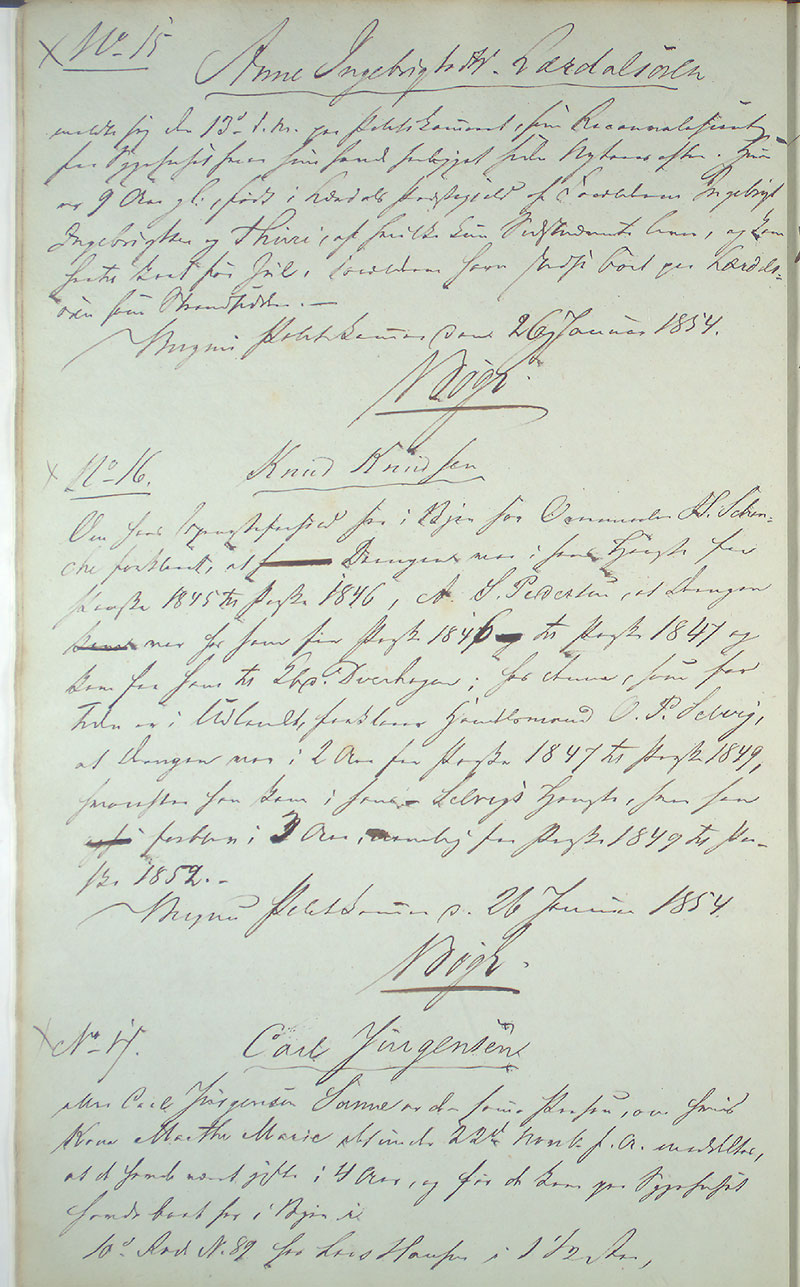 No 15
Anne Ingebrigtsdtr. Lærdalsören
meldte sig den 13de d. M. paa Politikammeret, som Reconvalescent
fra Sygehuset hvor hun havde henligget siden Nytaarsaften. Hun
er 9 Aar gl., født i Lærdals Præstegjeld af Forældrene Ingebrigt
Ingebrigtsen og Thuri, af hvilke kun Sidstnævnte lever, og kom
hertil kort før Jul. Forældrene have stedse boet paa Lærdals-
ören som Strandsidder. —
Bergens Politikammer den 26 Januar 1854.
Bøgh
No 16.
Knud Knudsen
Om hans Opholdsforhold her i Byen har H. Schen-
che forklaret, at Drengen var i hans Huus fra
Paaske 1845 til Paaske 1846, A. S. Pedersen, at Drengen
var hos ham fra Paaske 1846 til Paaske 1847 og
kom fra ham til Dverhagen; hos som for
Tiden er i Udlandet, forklarer Handelsmand O. P. Selvig,
at Drengen var i 2 Aar fra Paaske 1847 til Paaske 1849,
hvorefter han kom i hans – Selvigs Huus, hvor han
forblev i 3 Aar, nemlig fra Paaske 1849 til Paa-
ske 1852. –
Bergens Politikammer d. 26 Januar 1854.
Bøgh.
No 17.
Carl Jürgensen
Carl Jürgensen er den samme Person, om hvis
Kone Marthe Marie under 22de Novb. f. A. meddeltes,
at de havde været gifte i 4 Aar, og før de kom paa Sygehuset
havde boet her i Byen i
10de Rode N. 89 hos Lars Hansen i 1 1/2 Aar,